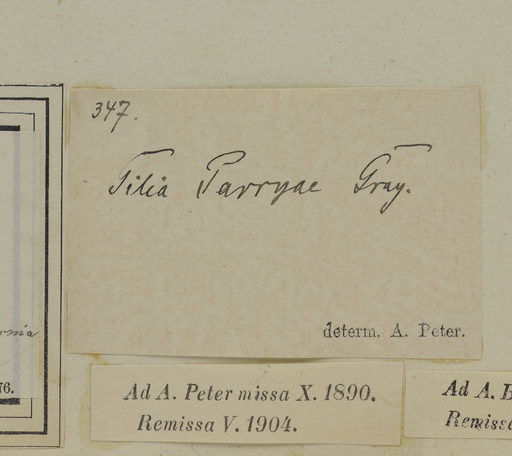 347.
Tilia Parryae Gray.
determ. A. Peter.
Ad A. Peter missa X. 1890.
Remissa V. 1904.
Ad A.
76.